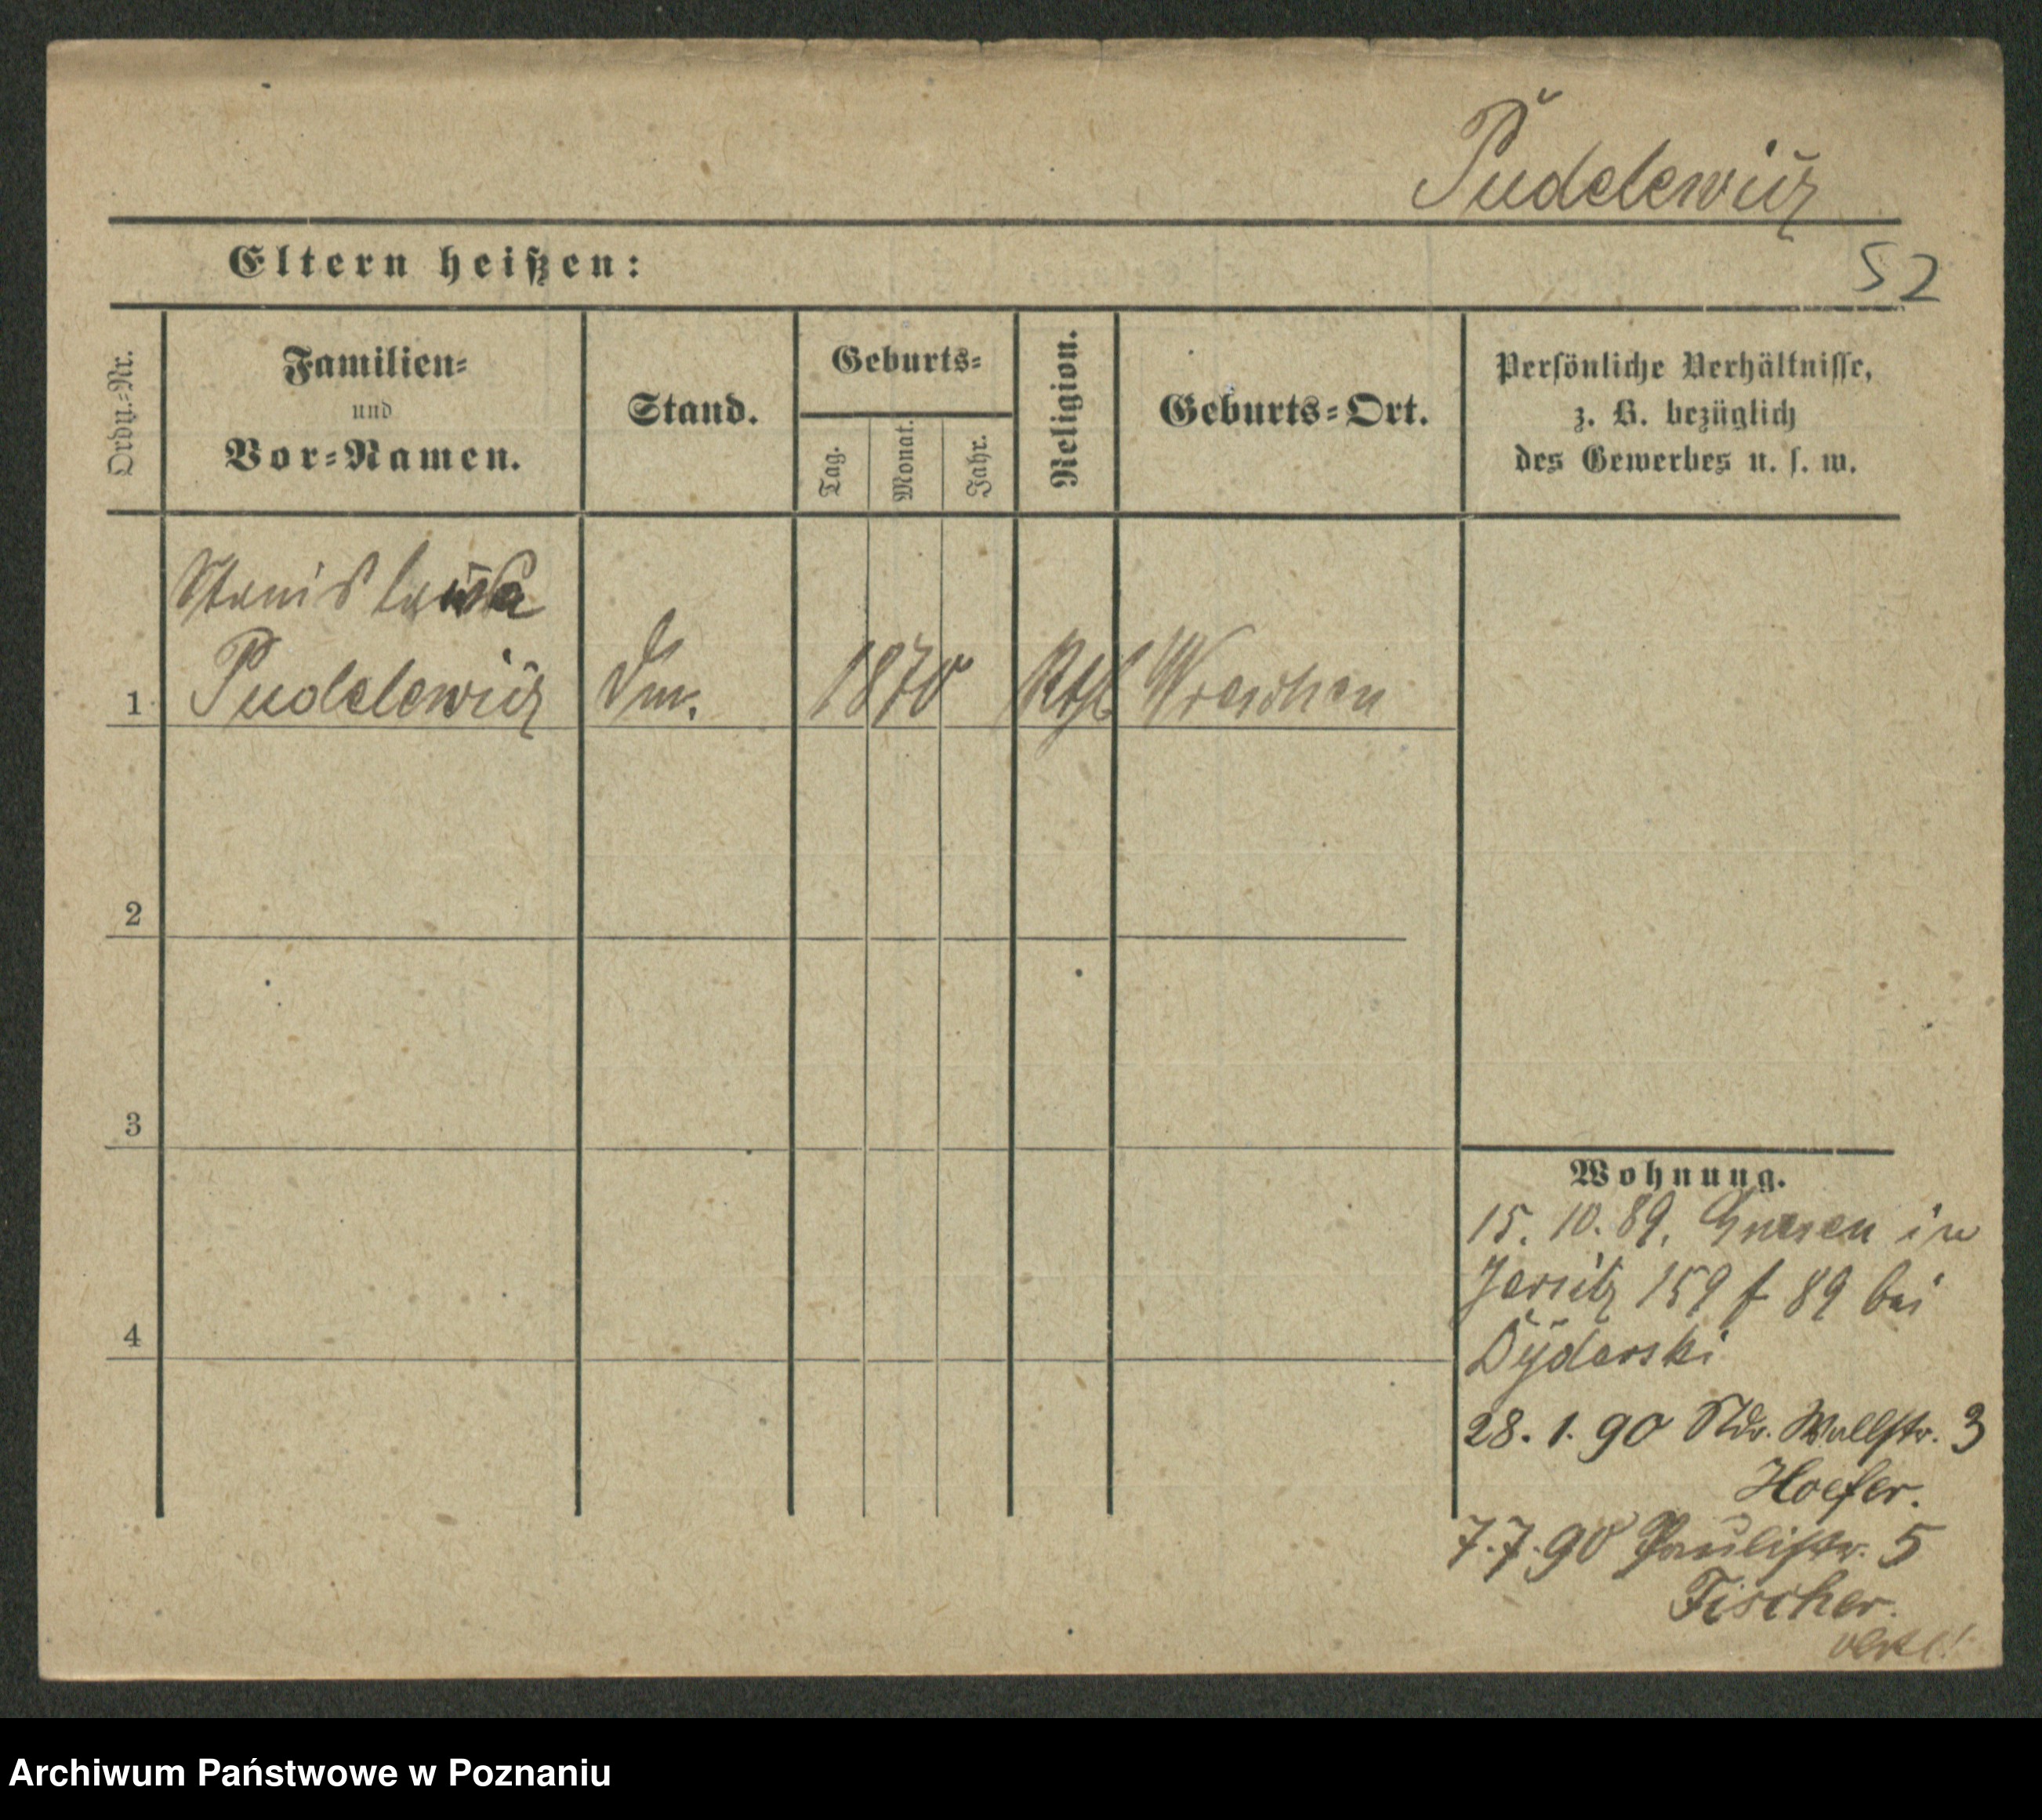 Pudelewicz
52
Eltern heißen:
Ordn.-Nr.
Familien-
und
Vor-Namen.
Stand.
Geburts-
Tag.
Monat.
Jahr.
Religion.
Geburts-Ort.
Persönliche Verhältnisse,
z. B. bezüglich
des Gewerbes u. s. w.
Stanislawa
1 Pudelewicz 1870 Wreschen
2
3
4
Wohnung.
15. 10. 89. Gnesen in
Jersitz 159 f 89 bei
Dyderski
28. 1. 90 Wallstr. 3
Hoefer.
7. 7. 90 Paulistr. 5
Fischer.
Archiwum Państwowe w Poznaniu